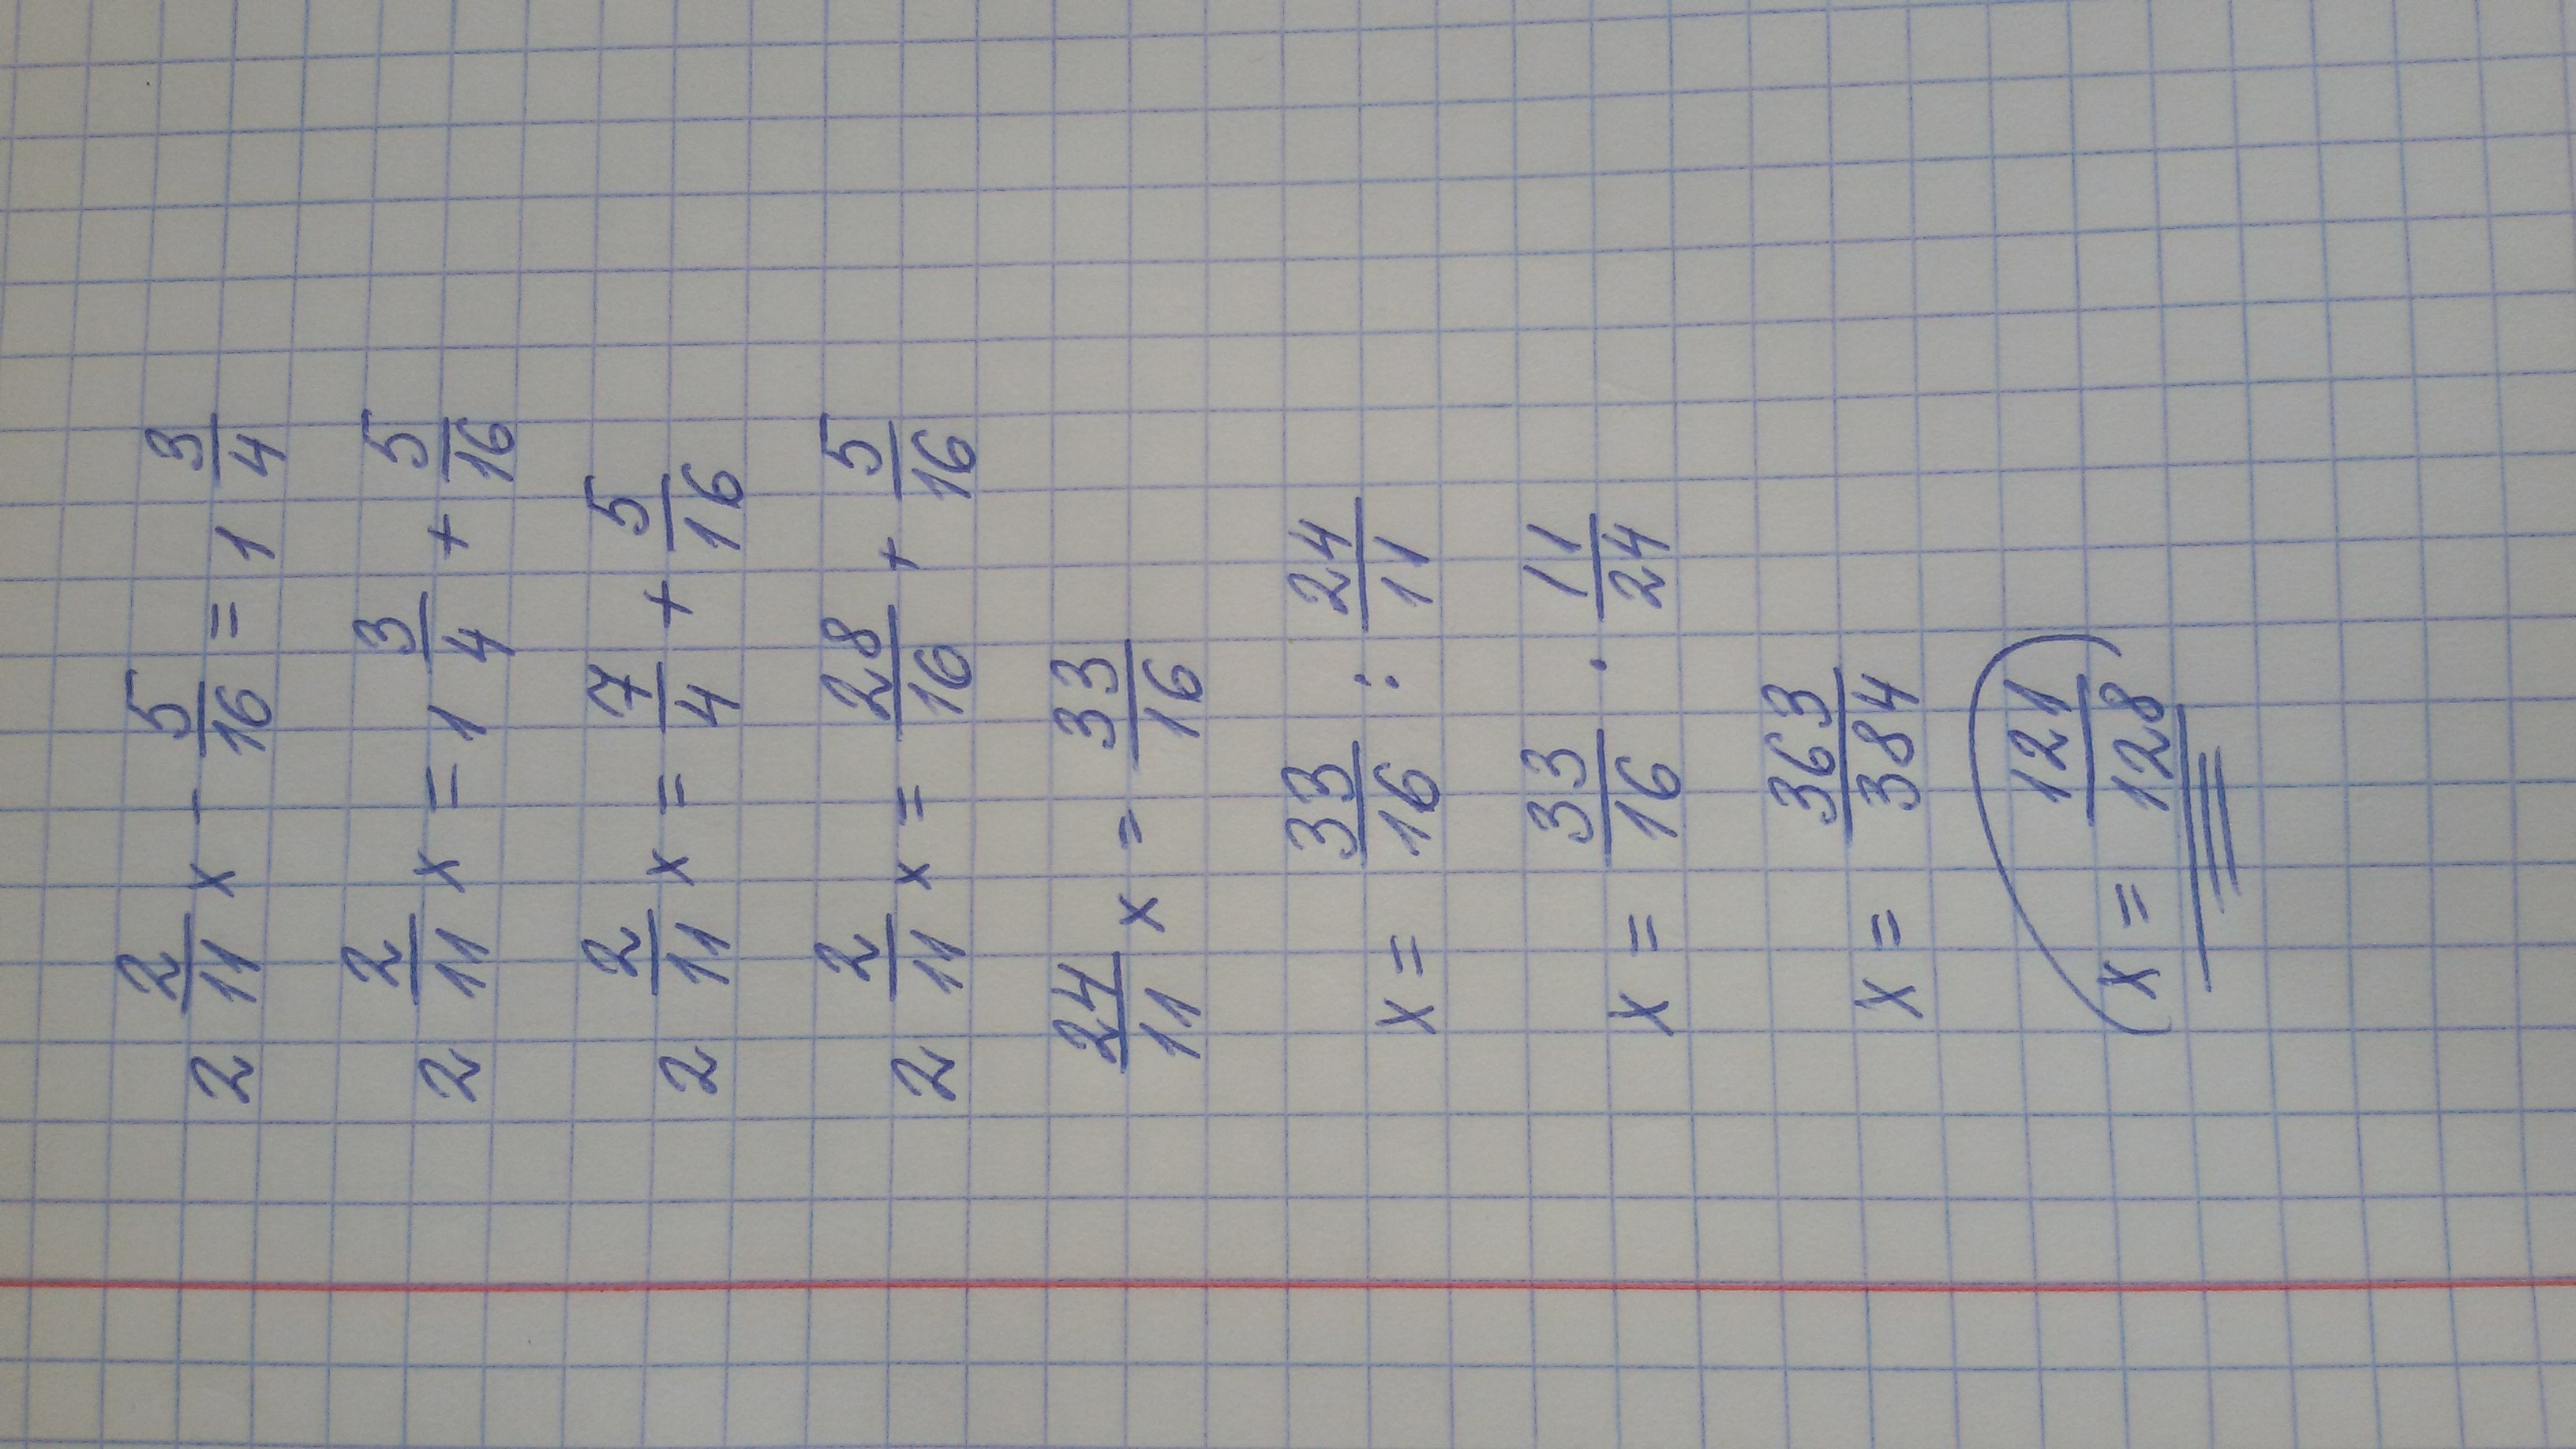 2 2/11 x - 5/16 = 1 3/4
2 2/11 x = 1 3/4 + 5/16
2 2/11 x = 7/4 + 5/16
2 2/11 x = 28/16 + 5/16
24/11 x = 33/16
x = 33/16 : 24/11
x = 33/16 · 11/24
x = 363/384
x = 121/128